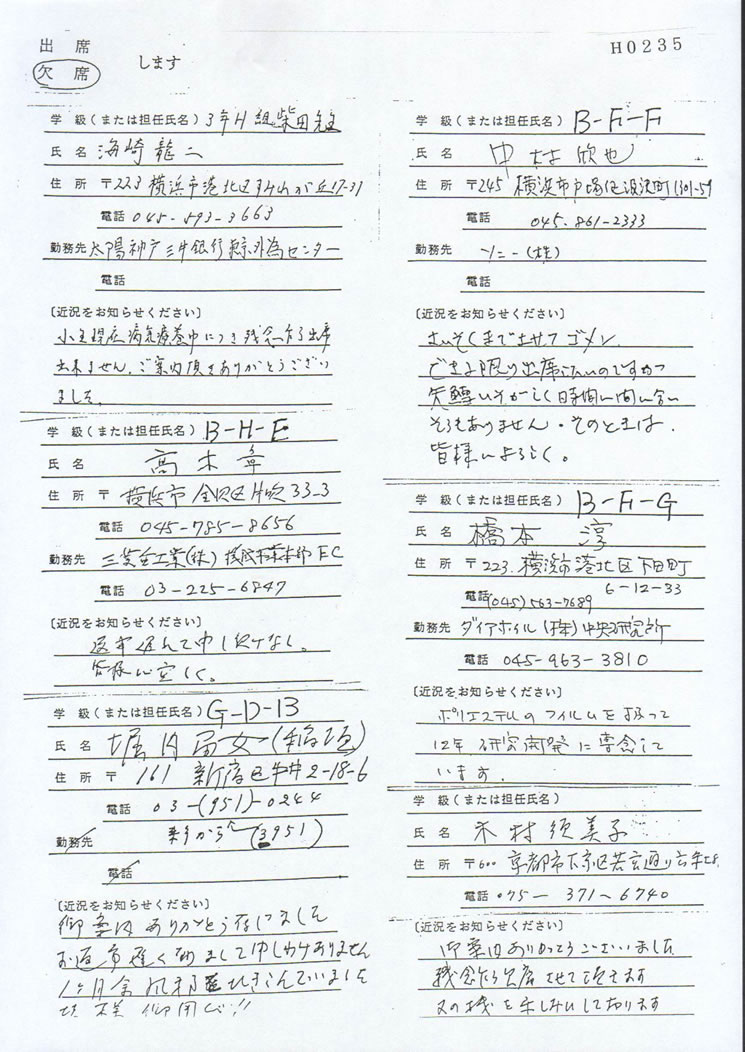 出席
欠席
します
H0235
学級(または担任氏名) 3年H組 柴田先生
氏名 海崎龍二
住所 〒223 横浜市港北区すみれが丘17-31
電話 045-593-3663
勤務先 太陽神戸三井銀行東京外為センター
電話
〔近況をお知らせください〕
小生現在病気療養中につき残念ながら出席
出来ません。ご案内頂きありがとうござい
ました。
学級(または担任氏名) B-H-E
氏名 高木 章
住所 〒 横浜市金沢区 33-3
電話 045-785-8656
勤務先 三菱重工業(株)
電話 03-225-6847
〔近況をお知らせください〕
返事遅れて申し訳なし。
皆様に宜しく。
学級(または担任氏名) G-D-13
氏名 堀内 (稲垣)
住所 〒 161 新宿区中井2-18-6
電話 03-(951)-0244
勤務先 新から (3951)
電話
〔近況をお知らせください〕
御案内ありがとう存じました
お返事遅くなりまして申しわけありません
1ヶ月余風邪 ひきこんでいました
学級(または担任氏名) B-F-F
氏名 中村欣也
住所 〒245 横浜市戸塚区深沢町1301-59
電話 045-861-2333
勤務先 ソニー(株)
電話
〔近況をお知らせください〕
さいそくまでさせてゴメン.
できる限り出席したいのですが
矢鱈いそがしく時間に間に合い
そうもありません・そのときは.
皆様によろしく。
学級(または担任氏名) B-F-G
氏名 橋本 淳
住所 〒223. 横浜市港北区下田町
6-12-33
電話 (045)563-7689
勤務先 ダイアホイル(株)中央研究所
電話 045-963-3810
〔近況をお知らせください〕
ポリエステルのフイルムを扱って
12年. 研究開発に専念して
います.
学級(または担任氏名)
氏名 木村須美子
住所 〒600 京都市下京区若宮通り六条
電話 075-371-6740
〔近況をお知らせください〕
御案内ありがとうございました
残念ながら欠席させて頂きます
又の機を楽しみにしております